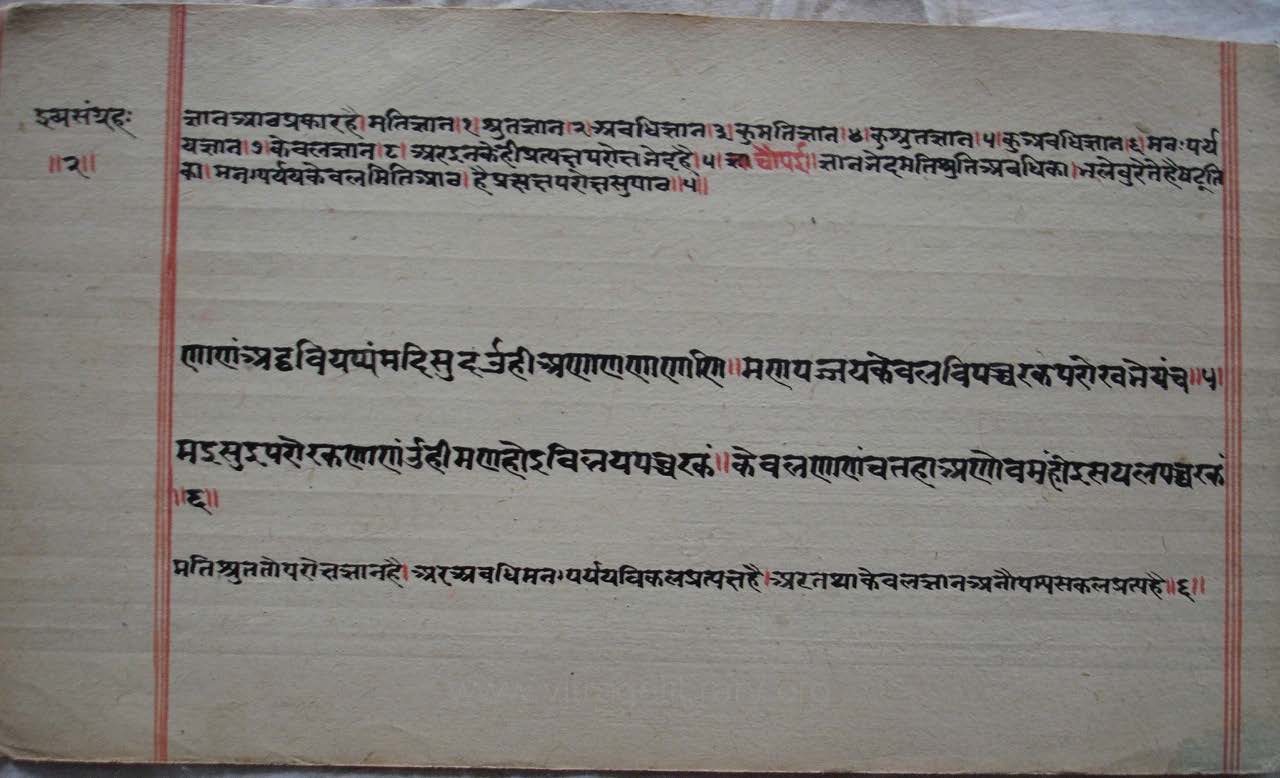 द्रव्यसंग्रहः
॥२॥
ज्ञानआठप्रकारहै।मतिज्ञान।१।श्रुतज्ञान।२।अवधिज्ञान।३।कुमतिज्ञान।४।कुश्रुतज्ञान।५।कुअवधिज्ञान।६।मनःपर्य
यज्ञान।७।केवलज्ञान।८।अरइनकेहीप्रत्यक्षपरोक्षभेदहै।५।चौपई।ज्ञानभेदमतिश्रुतिअवधिका।भलेबुरे
का।मनःपर्ययकेवलमितिआठ।हेप्रत्यक्षपरोक्षसुपाठ॥५॥
णाणंअट्ठवियप्पंमदिसुदउंहीअणाणणाणाणि॥मणपज्जयकेवलविपच्चरकपरोखभेयंच॥५॥
मइसुइपरोरकणाणंउंहीमणहोइविलयपच्चरकं॥केवलणाणंचतहाअणोवमंहोइसयलपच्चरकं
॥६॥
मतिश्रुततोपरोक्षज्ञानहै।अरअवधिमनःपर्ययविकलप्रत्यक्षहै।अरतथाकेवलज्ञानअनौपम्यसकलप्रत्यहै॥६॥